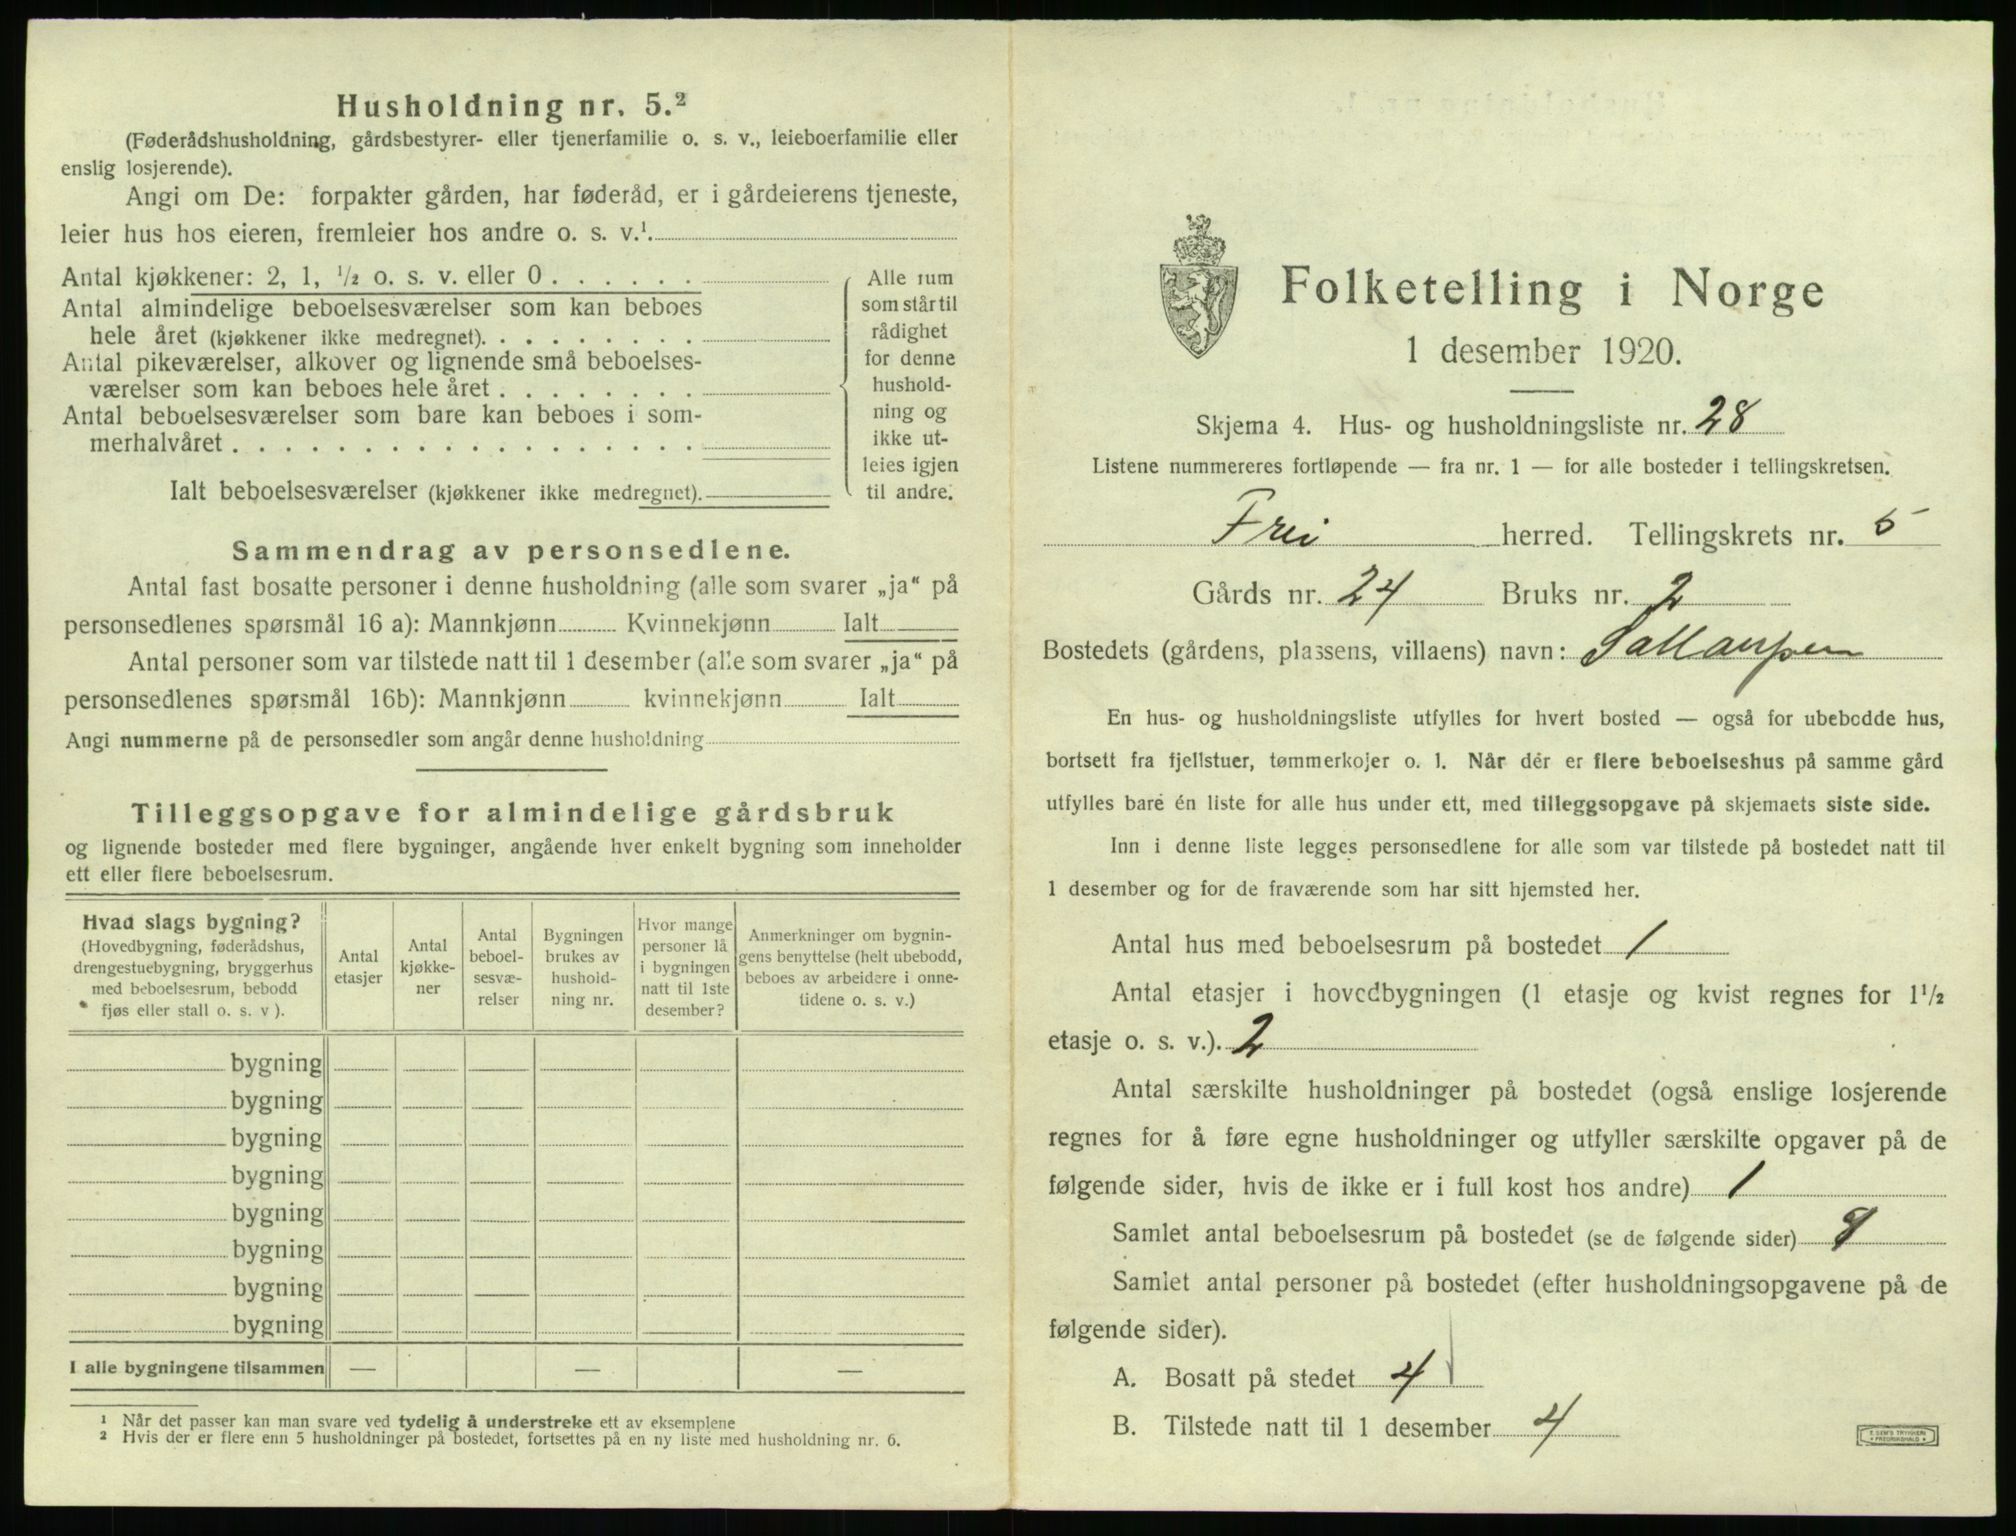 Husholdning nr. 5.²
(Føderådshusholdning, gårdsbestyrer- eller tjenerfamilie o. s. v., leieboerfamilie eller
enslig losjerende).
Angi om De: forpakter gården, har føderåd, er i gårdeierens tjeneste,
leier hus hos eieren, fremleier hos andre o. s. v.¹.
Antal kjøkkener: 2, 1, ½ o. s. v. eller 0 . . . . . .
Antal almindelige beboelsesværelser som kan beboes
hele året (kjøkkener ikke medregnet). . . . . . . . .
Antal pikeværelser, alkover og lignende små beboelses-
værelser som kan beboes hele året . . . . . . . .
Antal beboelsesværelser som bare kan beboes i som-
merhalvåret . . . . . . . . . . . . . . . . . .
Ialt beboelsesværelser (kjøkkener ikke medregnet).
Alle rum
som står til
rådighet
for denne
hushold-
ning og
ikke ut-
leies igjen
til andre.
Sammendrag av personsedlene.
Antal fast bosatte personer i denne husholdning (alle som svarer „ja“ på
personsedlenes spørsmål 16 a): Mannkjønn Kvinnekjønn Ialt
Antal personer som var tilstede natt til 1 desember (alle som svarer „ja“ på
personsedlenes spørsmål 16b): Mannkjønn kvinnekjønn Ialt
Angi nummerne på de personsedler som angår denne husholdning
Tilleggsopgave for almindelige gårdsbruk
og lignende bosteder med flere bygninger, angående hver enkelt bygning som inneholder
ett eller flere beboelsesrum.
Hvad slags bygning?
(Hovedbygning, føderådshus,
drengestuebygning, bryggerhus
med beboelsesrum, bebodd
fjøs eller stall o. s. v ).
Antal
etasjer
Antal
kjøkke-
ner
Antal
beboel-
sesvæ-
relser
Bygningen
brukes av
hushold-
ning nr.
Hvor mange
personer lå
i bygningen
natt til 1ste
desember?
Anmerkninger om bygnin-
gens benyttelse (helt ubebodd,
beboes av arbeidere i onne-
tidene o. s. v.)
bygning
bygning
bygning
bygning
bygning
bygning
bygning
bygning
I alle bygningene tilsammen — — —
¹ Når det passer kan man svare ved tydelig å understreke ett av eksemplene
² Hvis der er flere enn 5 husholdninger på bostedet, fortsettes på en ny liste med husholdning nr. 6.
Folketelling i Norge
1 desember 1920.
Skjema 4. Hus- og husholdningsliste nr. 28
Listene nummereres fortløpende — fra nr. 1 — for alle bosteder i tellingskretsen.
Frei herred. Tellingskrets nr. 5
Gårds nr. 24 Bruks nr. 2
Bostedets (gårdens, plassens, villaens) navn:
En hus- og husholdningsliste utfylles for hvert bosted — også for ubebodde hus,
bortsett fra fjellstuer, tømmerkojer o. l. Når der er flere beboelseshus på samme gård
utfylles bare én liste for alle hus under ett, med tilleggsopgave på skjemaets siste side.
Inn i denne liste legges personsedlene for alle som var tilstede på bostedet natt til
1 desember og for de fraværende som har sitt hjemsted her.
Antal hus med beboelsesrum på bostedet 1
Antal etasjer i hovedbygningen (1 etasje og kvist regnes for 1½
etasje o. s. v.). 2
Antal særskilte husholdninger på bostedet (også enslige losjerende
regnes for å føre egne husholdninger og utfyller særskilte opgaver på de
følgende sider, hvis de ikke er i full kost hos andre) 1
Samlet antal beboelsesrum på bostedet (se de følgende sider)
Samlet antal personer på bostedet (efter husholdningsopgavene på de
følgende sider).
A. Bosatt på stedet 4
B. Tilstede natt til 1 desember 4
E. SEM'S TRYKKERI
FREDRIKSHALD